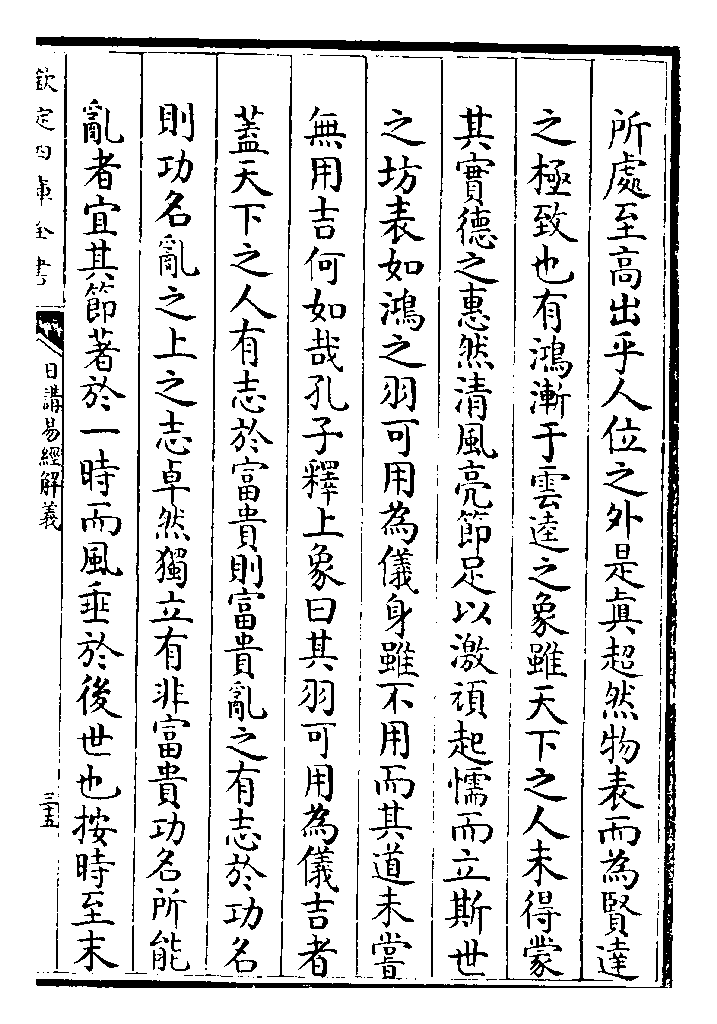 所處至高出乎人位之外是眞超然物表而為賢達
之極致也有鴻漸于雲逵之象雖天下之人未得蒙
其實德之惠然清風亮節足以激頑起懦而立斯世
之坊表如鴻之羽可用為儀身雖不用而其道未嘗
無用吉何如哉孔子釋上象曰其羽可用為儀吉者
蓋天下之人有志於富貴則富貴亂之有志於功名
則功名亂之上之志卓然獨立有非富貴功名所能
亂者宜其節著於一時而風垂於後世也按時至末
欽定四庫全書
日講易經解義
三五